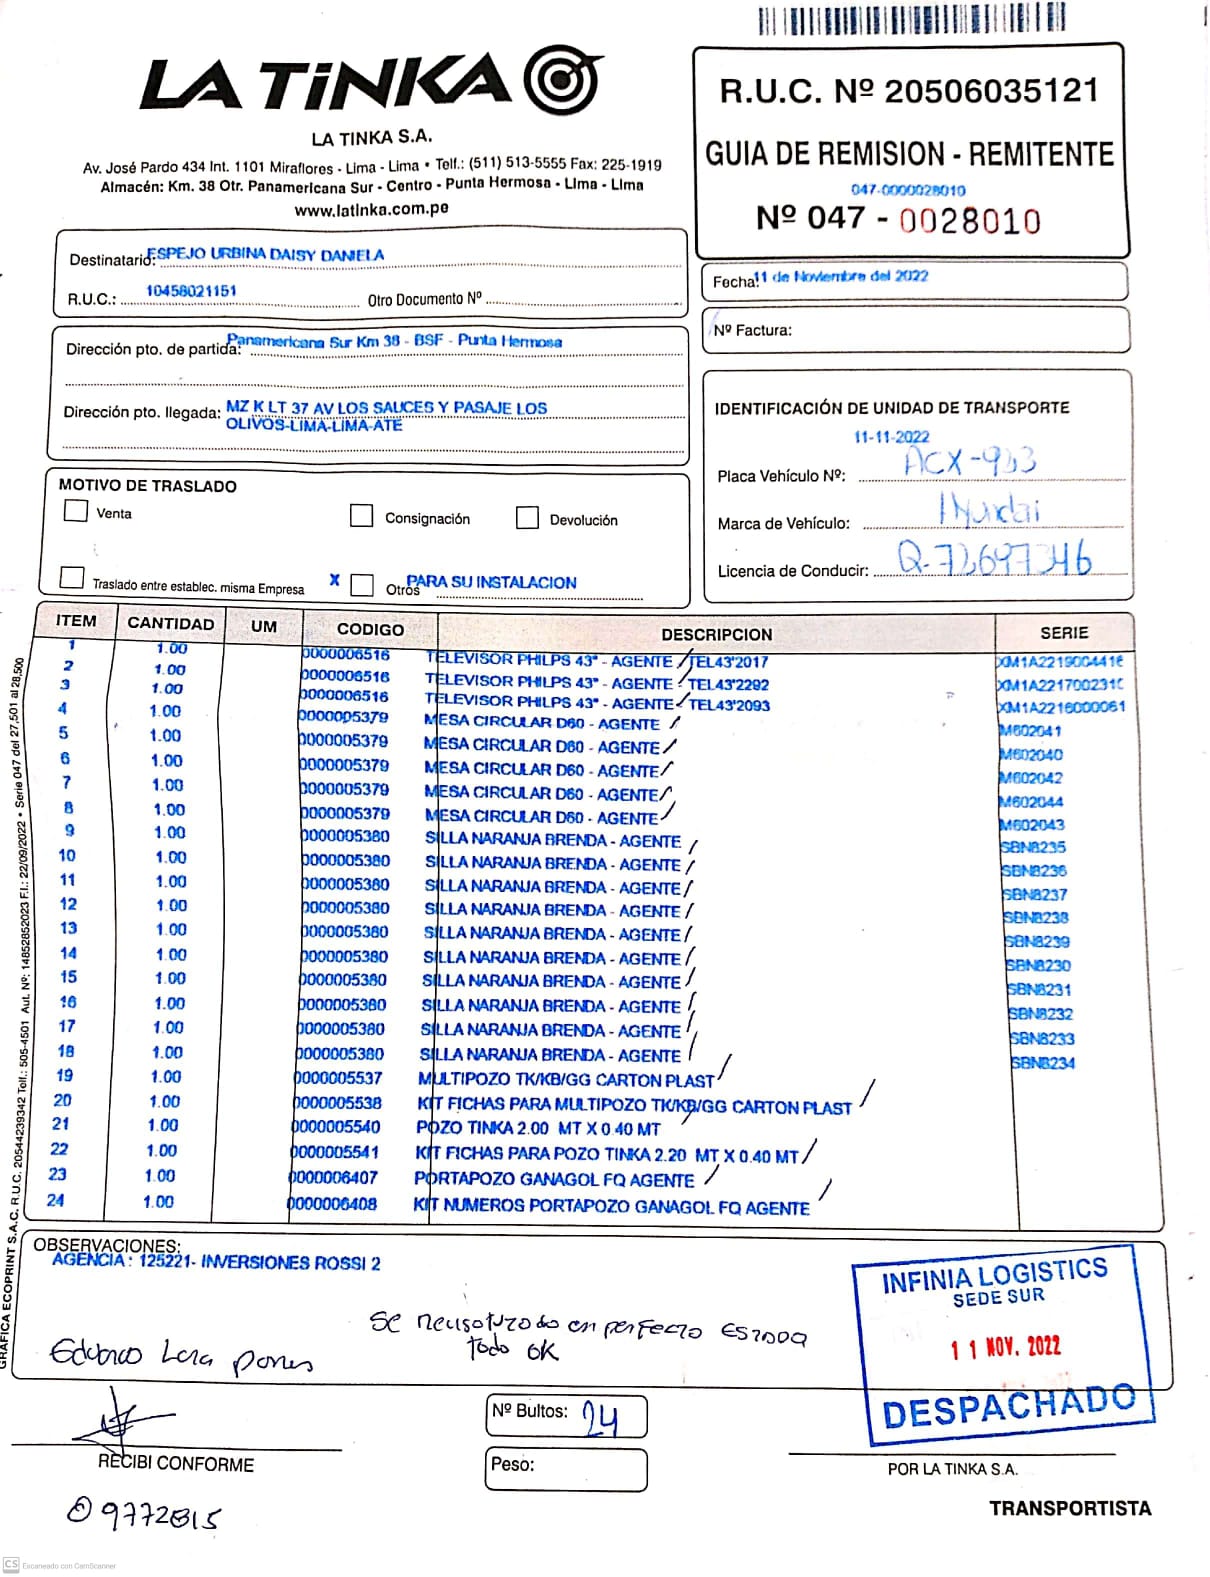 LA TiNKA
LA TINKA S.A.
Av. José Pardo 434 Int. 1101 Miraflores - Lima - Lima • Telf.: (511) 513-5555 Fax: 225-1919
Almacén: Km. 38 Otr. Panamericana Sur - Centro - Punta Hermosa - Lima - Lima
www.latinka.com.pe
R.U.C. Nº 20506035121
GUIA DE REMISION - REMITENTE
047-0000028010
Nº 047 - 0028010
Destinatario: ESPEJO URBINA DAISY DANIELA
R.U.C.: 10458021151 Otro Documento Nº
Fecha: 11 de Noviembre del 2022
Nº Factura:
Dirección pto. de partida: Panamericana Sur Km 38 - BSF - Punta Hermosa
Dirección pto. llegada: MZ K LT 37 AV LOS SAUCES Y PASAJE LOS
OLIVOS-LIMA-LIMA-ATE
IDENTIFICACIÓN DE UNIDAD DE TRANSPORTE
11-11-2022
Placa Vehículo Nº: ACX-933
Marca de Vehículo: Hyundai
Licencia de Conducir: Q-72697346
MOTIVO DE TRASLADO
Venta Consignación Devolución
Traslado entre establec. misma Empresa X Otros PARA SU INSTALACION
ITEM CANTIDAD UM CODIGO DESCRIPCION SERIE
1 1.00 0000006516 TELEVISOR PHILPS 43" - AGENTE / TEL43'2017 XM1A2219004416
2 1.00 0000006516 TELEVISOR PHILPS 43" - AGENTE / TEL43'2292 XM1A2217002310
3 1.00 0000006516 TELEVISOR PHILPS 43" - AGENTE / TEL43'2093 XM1A2216000061
4 1.00 0000005379 MESA CIRCULAR D60 - AGENTE M602041
5 1.00 0000005379 MESA CIRCULAR D60 - AGENTE M602040
6 1.00 0000005379 MESA CIRCULAR D60 - AGENTE M602042
7 1.00 0000005379 MESA CIRCULAR D60 - AGENTE M602044
8 1.00 0000005379 MESA CIRCULAR D60 - AGENTE M602043
9 1.00 0000005380 SILLA NARANJA BRENDA - AGENTE SBN8235
10 1.00 0000005380 SILLA NARANJA BRENDA - AGENTE SBN8236
11 1.00 0000005380 SILLA NARANJA BRENDA - AGENTE SBN8237
12 1.00 0000005380 SILLA NARANJA BRENDA - AGENTE SBN8238
13 1.00 0000005380 SILLA NARANJA BRENDA - AGENTE SBN8239
14 1.00 0000005380 SILLA NARANJA BRENDA - AGENTE SBN8230
15 1.00 0000005380 SILLA NARANJA BRENDA - AGENTE SBN8231
16 1.00 0000005380 SILLA NARANJA BRENDA - AGENTE SBN8232
17 1.00 0000005380 SILLA NARANJA BRENDA - AGENTE SBN8233
18 1.00 0000005380 SILLA NARANJA BRENDA - AGENTE SBN8234
19 1.00 0000005537 MULTIPOZO TK/KB/GG CARTON PLAST
20 1.00 0000005538 KIT FICHAS PARA MULTIPOZO TK/KB/GG CARTON PLAST
21 1.00 0000005540 POZO TINKA 2.00 MT X 0.40 MT
22 1.00 0000005541 KIT FICHAS PARA POZO TINKA 2.20 MT X 0.40 MT
23 1.00 0000006407 PORTAPOZO GANAGOL FQ AGENTE
24 1.00 0000006408 KIT NUMEROS PORTAPOZO GANAGOL FQ AGENTE
GRAFICA ECOPRINT S.A.C. R.U.C. 20544239342 Telf.: 505-4501 Aut. Nº: 14852852023 F.I.: 22/09/2022 • Serie 047 del 27,501 al 28,500
OBSERVACIONES:
AGENCIA : 125221- INVERSIONES ROSSI 2
Se en perfecto
todo OK
Eduardo Lara
INFINIA LOGISTICS
SEDE SUR
11 NOV. 2022
DESPACHADO
Nº Bultos: 24
Peso:
RECIBI CONFORME
09772815
POR LA TINKA S.A.
TRANSPORTISTA
CS Escaneado con CamScanner